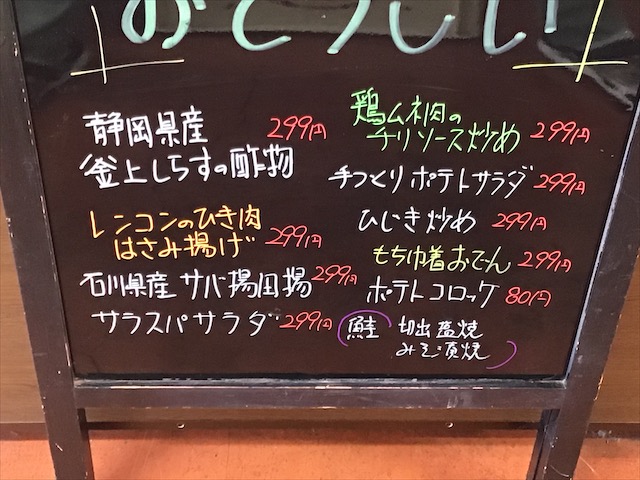 おとうしい
静岡県産 299円
釜上しらすの酢物
レンコンのひき肉
はさみ揚げ 299円
石川県産 サバ揚田揚 299円
サラスパサラダ 299円
鶏ムネ肉の
チリソース炒め 299円
手つくりポテトサラダ 299円
ひじき炒め 299円
もち巾着おでん 299円
ポテトコロッケ 80円
鮭 切出塩焼
みそ漬焼